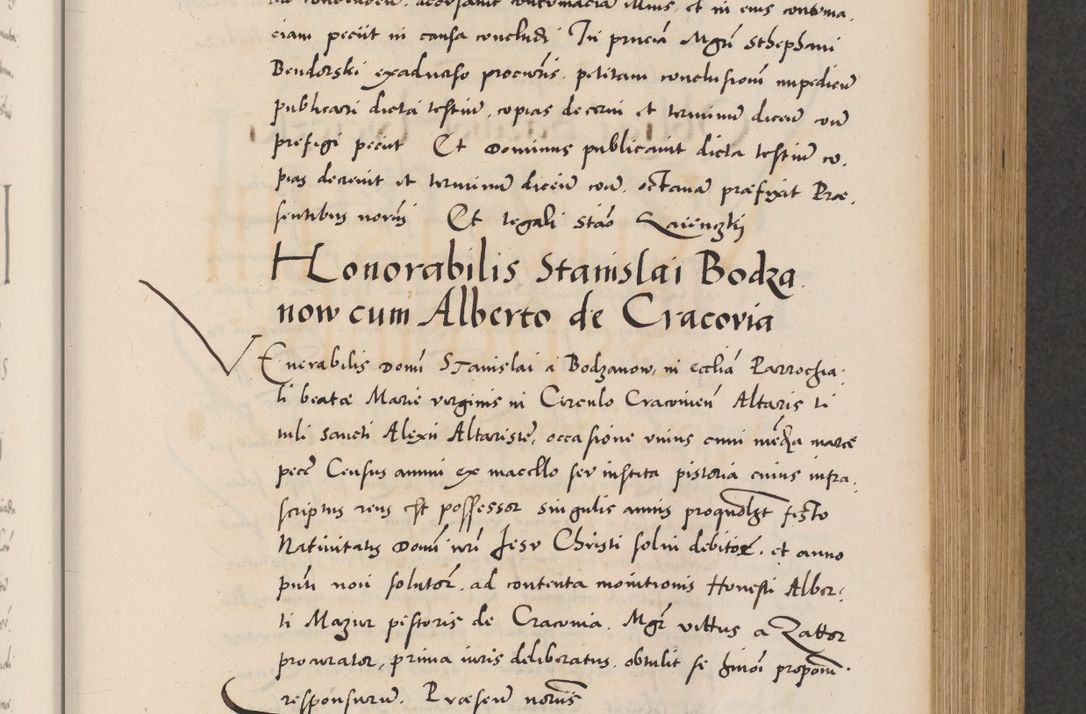 ciam peciit in causa concludi In pntia Mgri Sthephani
Bendorski exaduerso procuris. petitam conclusionem impediens
publicari dicta testium, copias decerni et terminum dicend con
prefigi peciit Et Dominus publicauit dicta testium co.
pias decreuit et terminum dicend con. octauam præfixit Præ.
sentibus notarijs Et legali Stao
Honorabilis Stanislai Bodza
now cum Alberto de Cracovia
Venerabilis Domi Stanislai a Bodzanow, in ecclia Parrochia.
li beatæ Marie virginis in Circulo Cracovien Altaris ti
tuli Sancti Alexii Altariste, occasione vnius cum media marce
pece Census annui ex macello seu instita pistoria cuius infra.
scriptus reus est possessor singulis annis pro quolibet festo
Natiuitatis Domi nri Jesv Christi solui debitor. et anno
pnti non soluto. ad contenta monitionis Honesti Alber.
ti Mazur pistoris de Cracouia. Mgr vittus a Zattor
procurator, prima iuris deliberatus, obtulit se proponi.
responsurum. Præsen notarijs